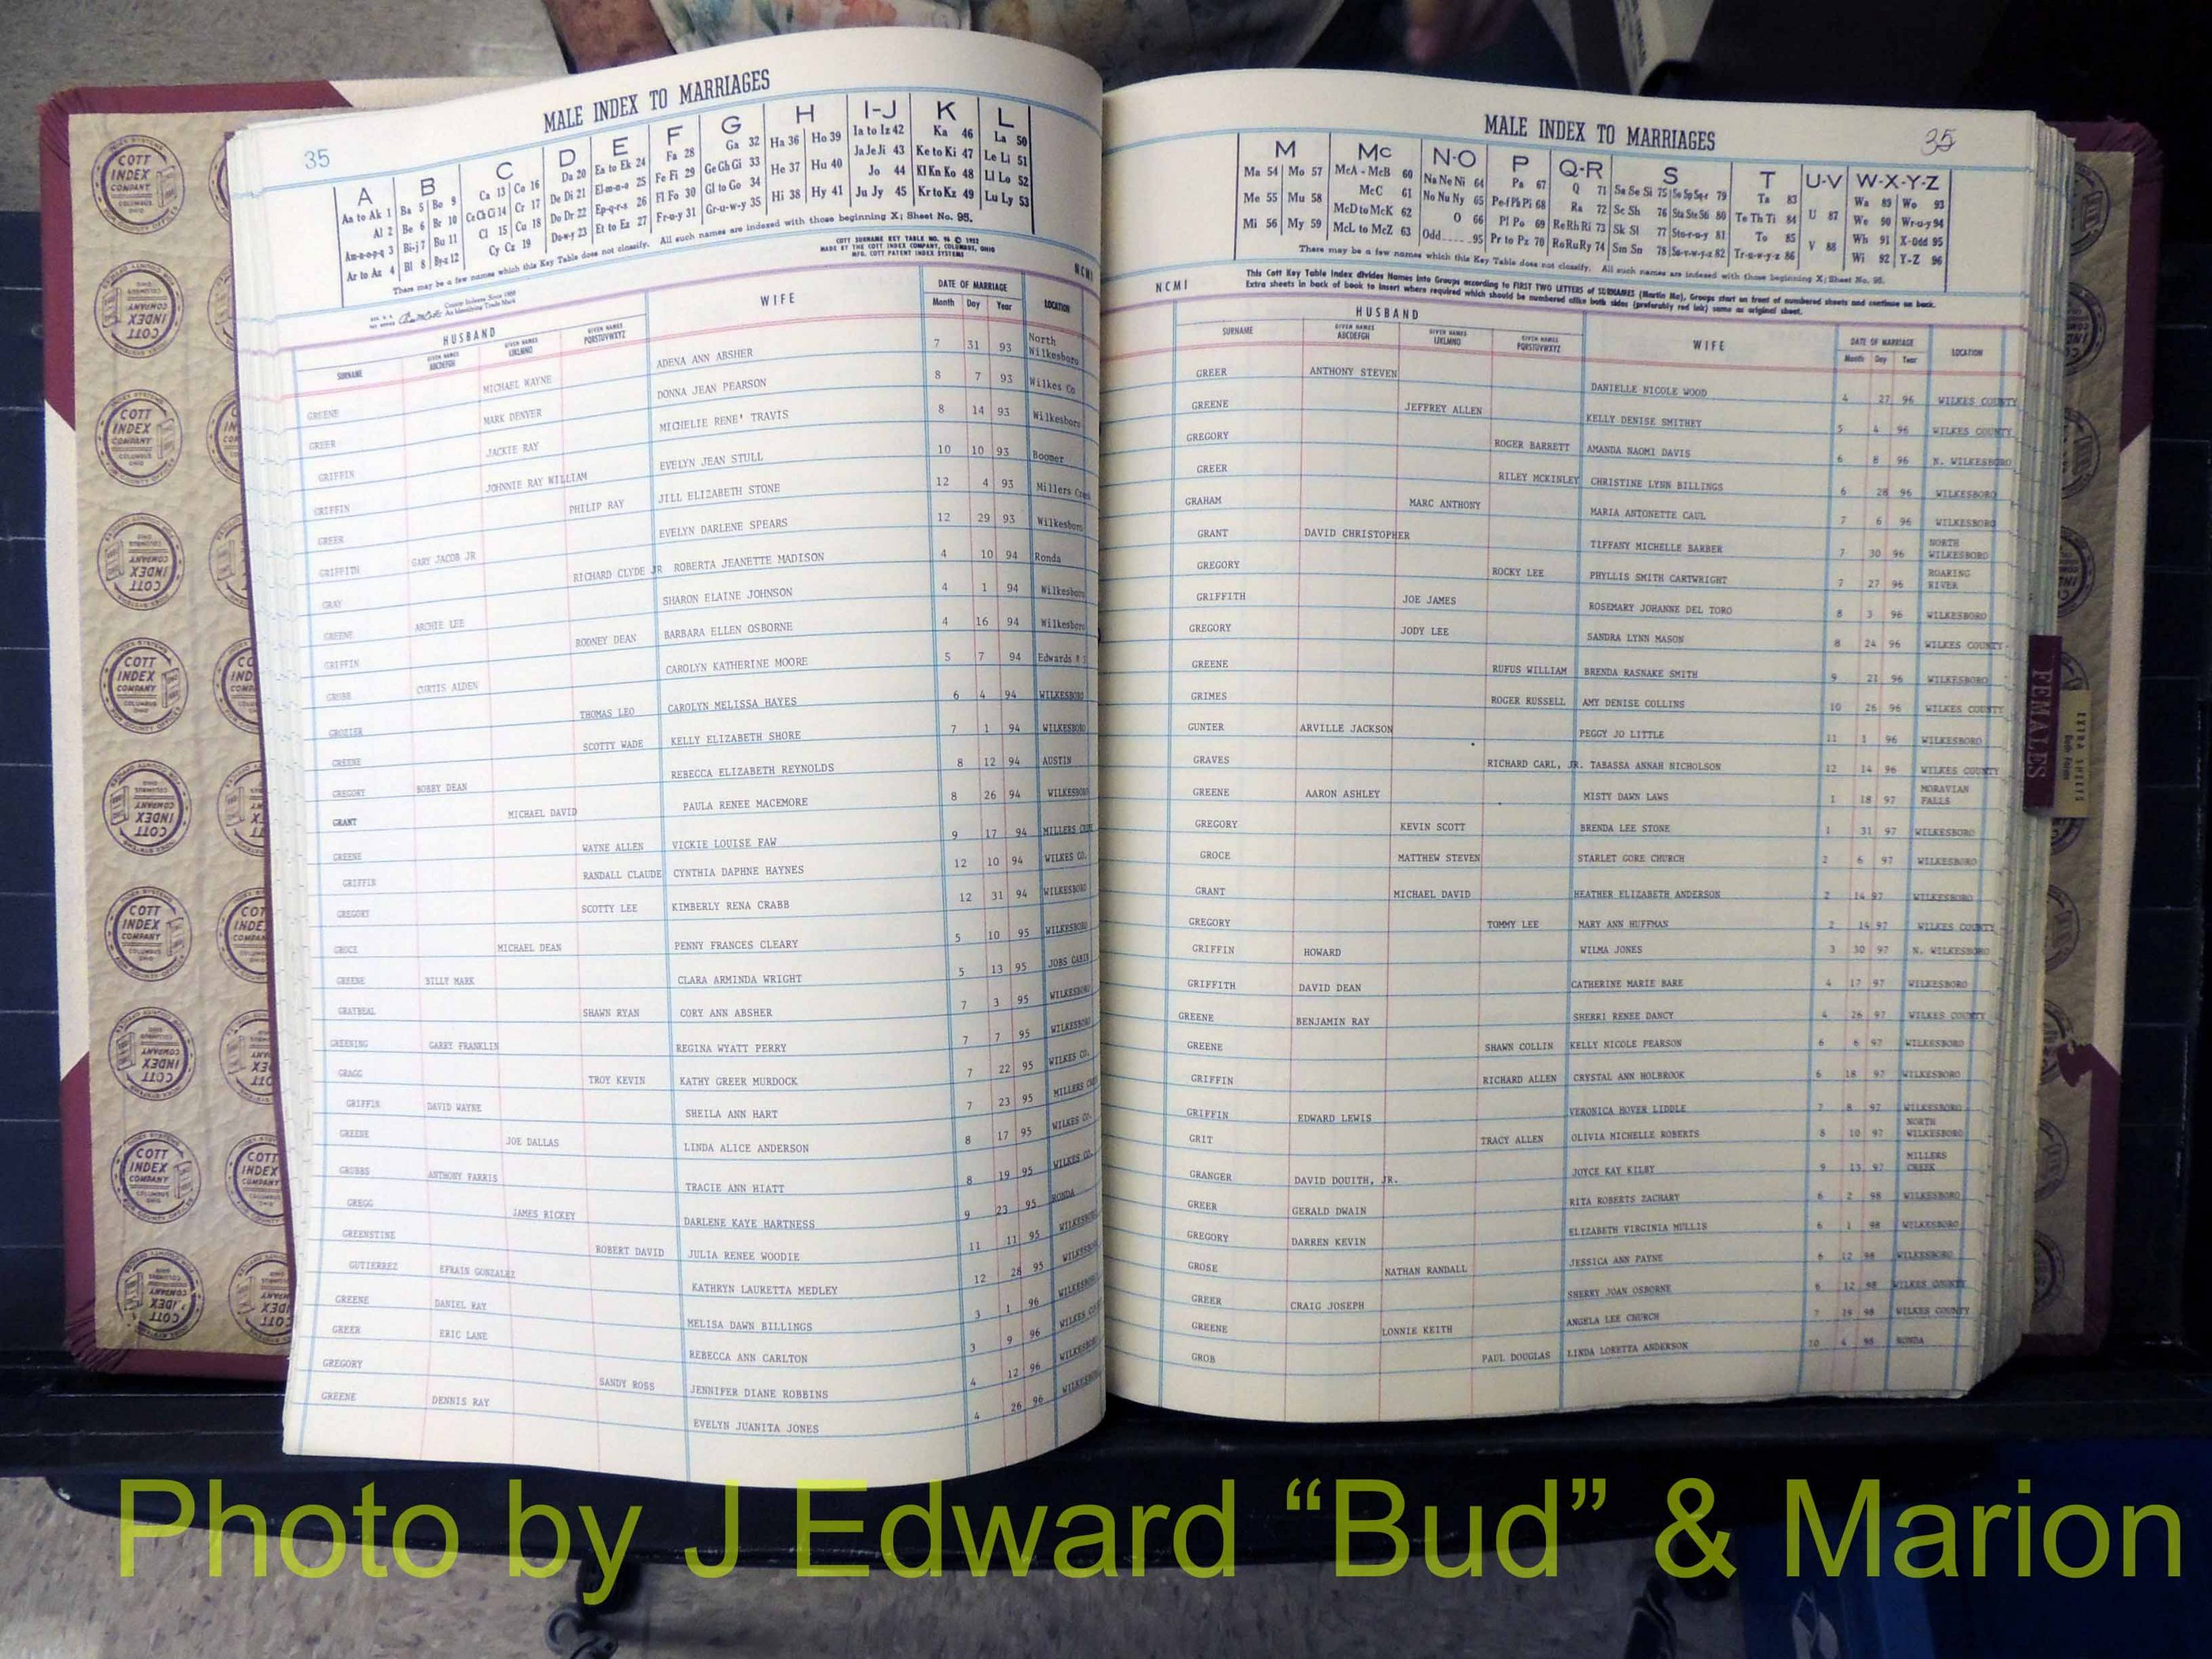 MALE INDEX TO MARRIAGES
35
A B C D E F G H I-J K L
Aa to Ak 1 Ba 5 Bo 9 Ca 13 Co 16 Da 20 Ea to Ek 24 Fa 28 Ga 32 Ha 36 Ho 39 Ia to Iz 42 Ka 46 La 50
Al 2 Be 6 Br 10 Ce Ch Ci 14 Cr 17 De Di 21 El-m-n-o 25 Fe Fi 29 Ge Gh Gi 33 He 37 Hu 40 Ja Je Ji 43 Ke to Ki 47 Le Li 51
Am-n-o-p-q 3 Bi-j 7 Bu 11 Cl 15 Cu 18 Do Dr 22 Ep-q-r-s 26 Fl Fo 30 Gl to Go 34 Hi 38 Hy 41 Jo 44 Kl Kn Ko 48 Ll Lo 52
Ar to Az 4 Bl 8 By-z 12 Cy Cz 19 Du-w-y 23 Et to Ez 27 Fr-u-y 31 Gr-u-w-y 35 Ju Jy 45 Kr to Kz 49 Lu Ly 53
There may be a few names which this Key Table does not classify. All such names are indexed with those beginning X; Sheet No. 95.
COTT SURNAME KEY TABLE NO. 96 © 1952
MADE BY THE COTT INDEX COMPANY, COLUMBUS, OHIO
MFG. COTT PATENT INDEX SYSTEMS
NCMI
HUSBAND WIFE DATE OF MARRIAGE LOCATION
SURNAME GIVEN NAMES ABCDEFGH GIVEN NAMES IJKLMNO GIVEN NAMES PQRSTUVWXYZ Month Day Year
GREENE MICHAEL WAYNE ADENA ANN ABSHER 7 31 93 North Wilkesboro
GREER MARK DENVER DONNA JEAN PEARSON 8 7 93 Wilkes Co
GRIFFIN JACKIE RAY MICHELIE RENE' TRAVIS 8 14 93 Wilkesboro
GRIFFIN JOHNNIE RAY WILLIAM EVELYN JEAN STULL 10 10 93 Boomer
GREER PHILIP RAY JILL ELIZABETH STONE 12 4 93 Millers Creek
GRIFFITH GARY JACOB JR EVELYN DARLENE SPEARS 12 29 93 Wilkesboro
GRAY RICHARD CLYDE JR ROBERTA JEANETTE MADISON 4 10 94 Ronda
GREENE ARCHIE LEE SHARON ELAINE JOHNSON 4 1 94 Wilkesboro
GRIFFIN RODNEY DEAN BARBARA ELLEN OSBORNE 4 16 94 Wilkesboro
GRUBB CURTIS ALDEN CAROLYN KATHERINE MOORE 5 7 94 Edwards
GROZIER THOMAS LEO CAROLYN MELISSA HAYES 6 4 94 WILKESBORO
GREENE SCOTTY WADE KELLY ELIZABETH SHORE 7 1 94 WILKESBORO
GREGORY BOBBY DEAN REBECCA ELIZABETH REYNOLDS 8 12 94 AUSTIN
GRANT MICHAEL DAVID PAULA RENEE MACEMORE 8 26 94 WILKESBORO
GREENE WAYNE ALLEN VICKIE LOUISE FAW 9 17 94 MILLERS CREEK
GRIFFIN RANDALL CLAUDE CYNTHIA DAPHNE HAYNES 12 10 94 WILKES CO.
GREGORY SCOTTY LEE KIMBERLY RENA CRABB 12 31 94 WILKESBORO
GROCE MICHAEL DEAN PENNY FRANCES CLEARY 5 10 95 WILKESBORO
GREENE BILLY MARK CLARA ARMINDA WRIGHT 5 13 95 JOBS CABIN
GRAYBEAL SHAWN RYAN CORY ANN ABSHER 7 3 95 WILKESBORO
GREENING GARRY FRANKLIN REGINA WYATT PERRY 7 7 95 WILKESBORO
GRAGG TROY KEVIN KATHY GREER MURDOCK 7 22 95 WILKES CO.
GRIFFIN DAVID WAYNE SHEILA ANN HART 7 23 95 MILLERS CREEK
GREENE JOE DALLAS LINDA ALICE ANDERSON 8 17 95 WILKES CO.
GRUBBS ANTHONY FARRIS TRACIE ANN HIATT 8 19 95 WILKES CO.
GREGG JAMES RICKEY DARLENE KAYE HARTNESS 9 23 95 RONDA
GREENSTINE ROBERT DAVID JULIA RENEE WOODIE 11 11 95 WILKESBORO
GUTIERREZ EFRAIN GONZALEZ KATHRYN LAURETTA MEDLEY 12 28 95 WILKESBORO
GREENE DANIEL RAY MELISA DAWN BILLINGS 3 1 96 WILKESBORO
GREER ERIC LANE REBECCA ANN CARLTON 3 9 96 WILKES COUNTY
GREGORY SANDY ROSS JENNIFER DIANE ROBBINS 4 12 96 WILKESBORO
GREENE DENNIS RAY EVELYN JUANITA JONES 4 26 96 WILKESBORO
MALE INDEX TO MARRIAGES
35
M Mc N-O P Q-R S T U-V W-X-Y-Z
Ma 54 Mo 57 McA - McB 60 Na Ne Ni 64 Pa 67 Q 71 Sa Se Si 75 So Sp Sq-r 79 Ta 83 U 87 Wa 89 Wo 93
Me 55 Mu 58 McC 61 No Nu Ny 65 Pe-f Ph Pi 68 Ra 72 Sc Sh 76 Sta Ste Sti 80 Te Th Ti 84 V 88 We 90 Wr-u-y 94
Mi 56 My 59 McD to McK 62 O 66 Pl Po 69 Re Rh Ri 73 Sk Sl 77 Sto-r-u-y 81 To 85 Wh 91 X-Odd 95
McL to McZ 63 Odd 95 Pr to Pz 70 Ro Ru Ry 74 Sm Sn 78 Su-v-w-y-z 82 Tr-u-w-y-z 86 Wi 92 Y-Z 96
There may be a few names which this Key Table does not classify. All such names are indexed with those beginning X; Sheet No. 95.
This Cott Key Table Index divides Names into Groups according to FIRST TWO LETTERS of SURNAMES (Martin Ma), Groups start on front of numbered sheets and continue on back.
Extra sheets in back of book to insert where required which should be numbered alike both sides (preferably red ink) same as original sheet.
NCMI
HUSBAND WIFE DATE OF MARRIAGE LOCATION
SURNAME GIVEN NAMES ABCDEFGH GIVEN NAMES IJKLMNO GIVEN NAMES PQRSTUVWXYZ Month Day Year
GREER ANTHONY STEVEN DANIELLE NICOLE WOOD 4 27 96 WILKES COUNTY
GREENE JEFFREY ALLEN KELLY DENISE SMITHEY 5 4 96 WILKES COUNTY
GREGORY ROGER BARRETT AMANDA NAOMI DAVIS 6 8 96 N. WILKESBORO
GREER RILEY MCKINLEY CHRISTINE LYNN BILLINGS 6 28 96 WILKESBORO
GRAHAM MARC ANTHONY MARIA ANTONETTE CAUL 7 6 96 WILKESBORO
GRANT DAVID CHRISTOPHER TIFFANY MICHELLE BARBER 7 30 96 NORTH WILKESBORO
GREGORY ROCKY LEE PHYLLIS SMITH CARTWRIGHT 7 27 96 ROARING RIVER
GRIFFITH JOE JAMES ROSEMARY JOHANNE DEL TORO 8 3 96 WILKESBORO
GREGORY JODY LEE SANDRA LYNN MASON 8 24 96 WILKES COUNTY
GREENE RUFUS WILLIAM BRENDA RASNAKE SMITH 9 21 96 WILKESBORO
GRIMES ROGER RUSSELL AMY DENISE COLLINS 10 26 96 WILKES COUNTY
GUNTER ARVILLE JACKSON PEGGY JO LITTLE 11 1 96 WILKESBORO
GRAVES RICHARD CARL, JR. TABASSA ANNAH NICHOLSON 12 14 96 WILKES COUNTY
GREENE AARON ASHLEY MISTY DAWN LAWS 1 18 97 MORAVIAN FALLS
GREGORY KEVIN SCOTT BRENDA LEE STONE 1 31 97 WILKESBORO
GROCE MATTHEW STEVEN STARLET GORE CHURCH 2 6 97 WILKESBORO
GRANT MICHAEL DAVID HEATHER ELIZABETH ANDERSON 2 14 97 WILKESBORO
GREGORY TOMMY LEE MARY ANN HUFFMAN 2 14 97 WILKES COUNTY
GRIFFIN HOWARD WILMA JONES 3 30 97 N. WILKESBORO
GRIFFITH DAVID DEAN CATHERINE MARIE BARE 4 17 97 WILKESBORO
GREENE BENJAMIN RAY SHERRI RENEE DANCY 4 26 97 WILKES COUNTY
GREENE SHAWN COLLIN KELLY NICOLE PEARSON 6 6 97 WILKESBORO
GRIFFIN RICHARD ALLEN CRYSTAL ANN HOLBROOK 6 18 97 WILKESBORO
GRIFFIN EDWARD LEWIS VERONICA HOVER LIDDLE 7 8 97 WILKESBORO
GRIT TRACY ALLEN OLIVIA MICHELLE ROBERTS 8 10 97 NORTH WILKESBORO
GRANGER DAVID DOUITH, JR. JOYCE KAY KILBY 9 13 97 MILLERS CREEK
GREER GERALD DWAIN RITA ROBERTS ZACHARY 6 2 98 WILKESBORO
GREGORY DARREN KEVIN ELIZABETH VIRGINIA MULLIS 6 1 98 WILKESBORO
GROSE NATHAN RANDALL JESSICA ANN PAYNE 6 12 98 WILKESBORO
GREER CRAIG JOSEPH SHERRY JOAN OSBORNE 6 12 98 WILKES COUNTY
GREENE LONNIE KEITH ANGELA LEE CHURCH 98 WILKES COUNTY
GROB PAUL DOUGLAS LINDA LORETTA ANDERSON 10 4 98 RONDA
FEMALES
EXTRA SHEETS
COTT INDEX COMPANY COLUMBUS OHIO
Photo by J Edward “Bud” & Marion